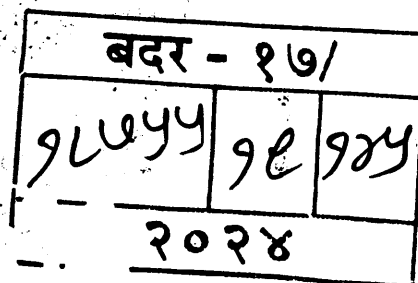 बदर - १७/
१८७५५ १९ १२५
२०२४